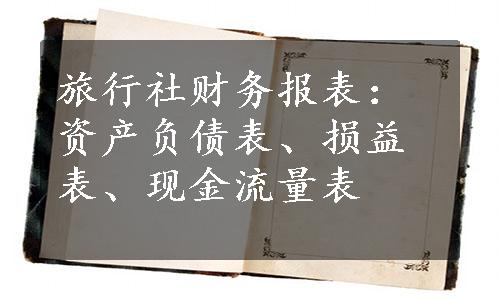 旅行社财务报表：
资产负债表、损益
表、现金流量表